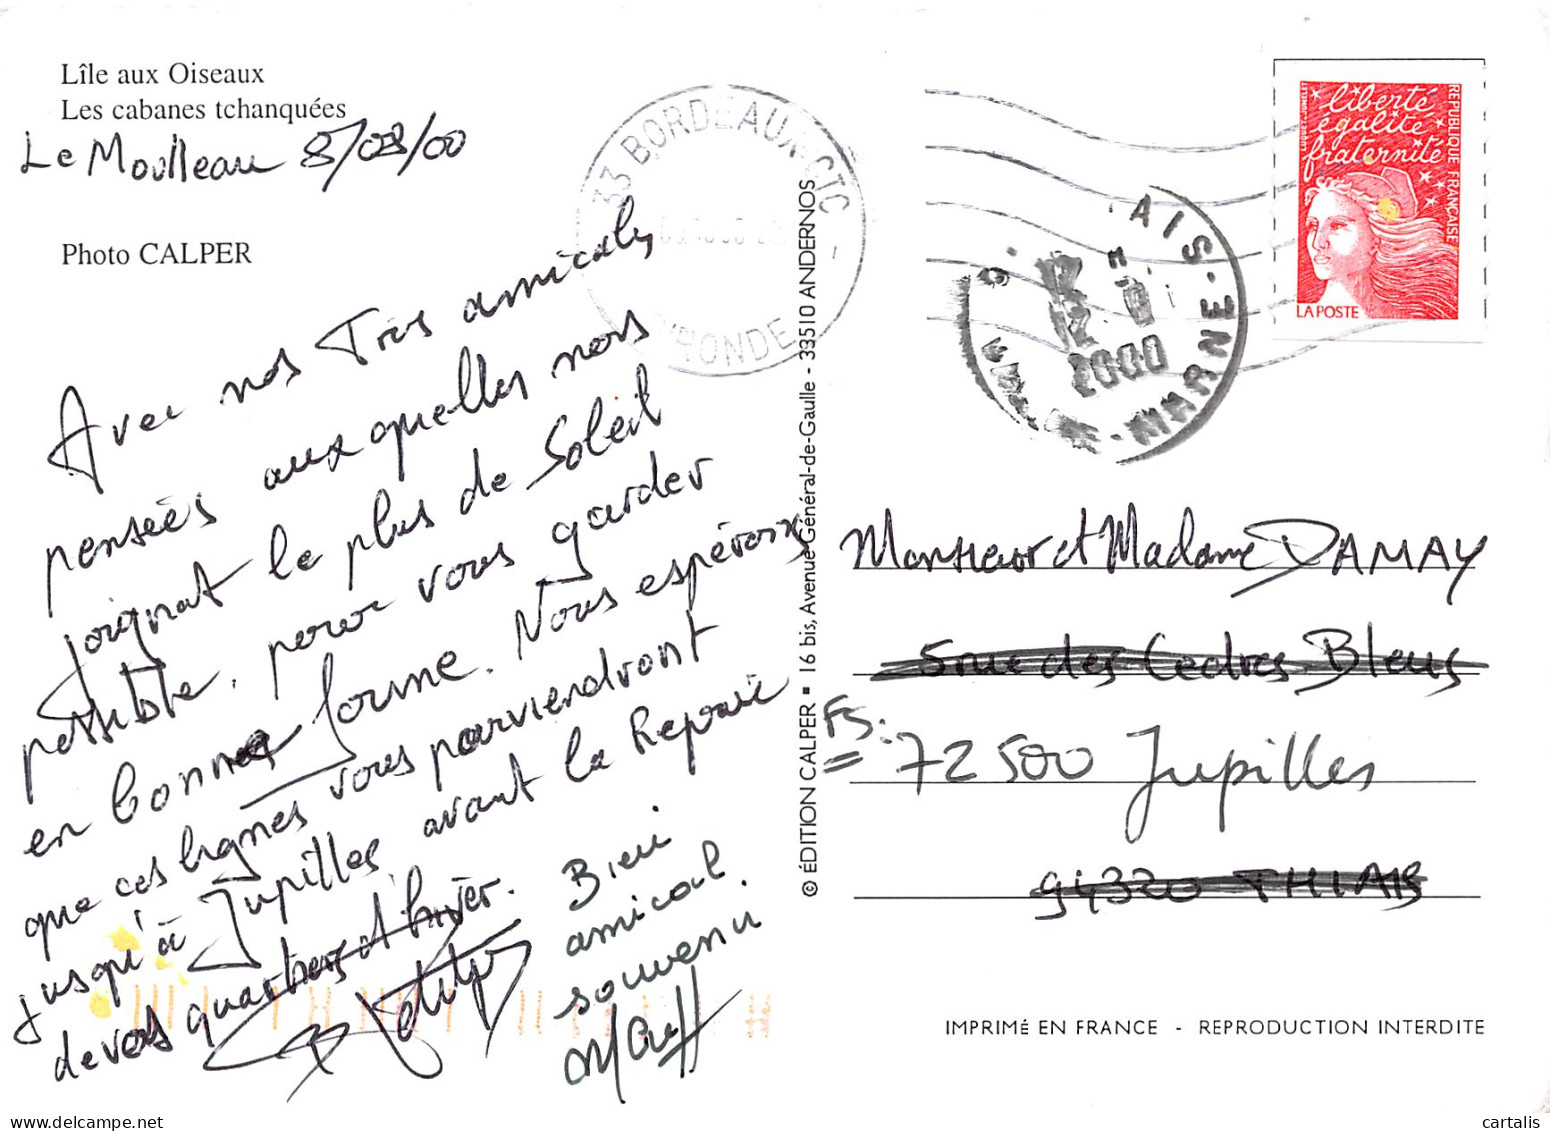 L'île aux Oiseaux
Les cabanes tchanquées
Le Moulleau 8/08/00
Photo CALPER
Avec nos Très amicales
pensées auxquelles nous
joignat le plus de Soleil
possible, pour vous garder
en bonne forme. Nous espérons
que ces lignes vous parviendront
jusqu'à Jupilles, avant la Reprise
de vos quartiers d'hiver.
Bien
amical
souvenir.
33 BORDEAUX-CTC
GIRONDE
AIS
12
2000
VAL-DE-MARNE
liberté
égalité
fraternité
REPUBLIQUE FRANÇAISE
LA POSTE
© ÉDITION CALPER ■ 16 bis, Avenue Général-de-Gaulle - 33510 ANDERNOS
Monsieur et Madame DAMAY
5 rue des Cèdres Bleus
FS:
72500 Jupilles
94320 THIAIS
IMPRIMé EN FRANCE - REPRODUCTION INTERDITE
cartalis